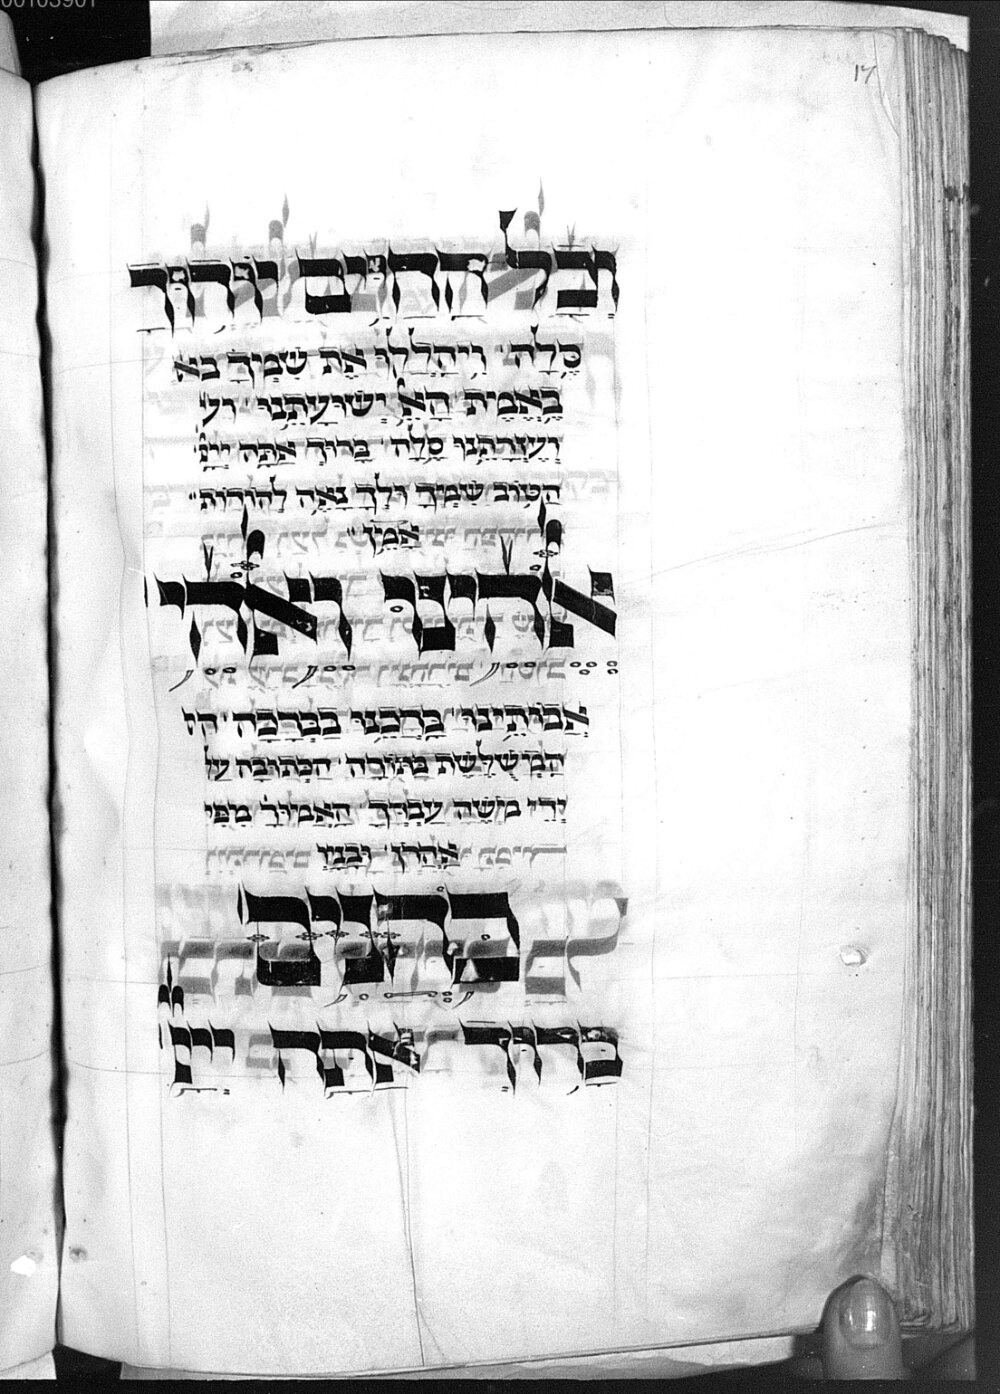 00103901
17
וְכָל הַחַיִים יוֹדוּךָ
סֶּלָה׳ וִיהַלְלוּ אֶת שִׁמְךָ בא
בֶּאֱמֶית הָאֵל יְשׁוּעָתֵנוּ׳ וע
וְעֶזְרָתֵנוּ סֶלָה׳ בָּרוּךְ אַתָּה יְיָ
הַטּוֹב שִׁמְךָ וּלְךָ נָאֶה לְהוֹדוֹת״
אָמֵן״
אֱלֹהֵינוּ וֵאלֹהֵי
אֲבוֹתֵינוּ בָּרְכֵנוּ בַבְּרָכָה הַ
הַמְשֻׁלֶּשֶׁת בַּתּוֹרָה הַכְּתוּבָה עַל
יְדֵי מֹשֶׁה עַבְדֶּךָ הָאֲמוּרָ׳ מִפִּי
אַהֲרֹן׳ וּבָנָיו
כהנים
בָּרוּךְ אַתָּה יְיָ